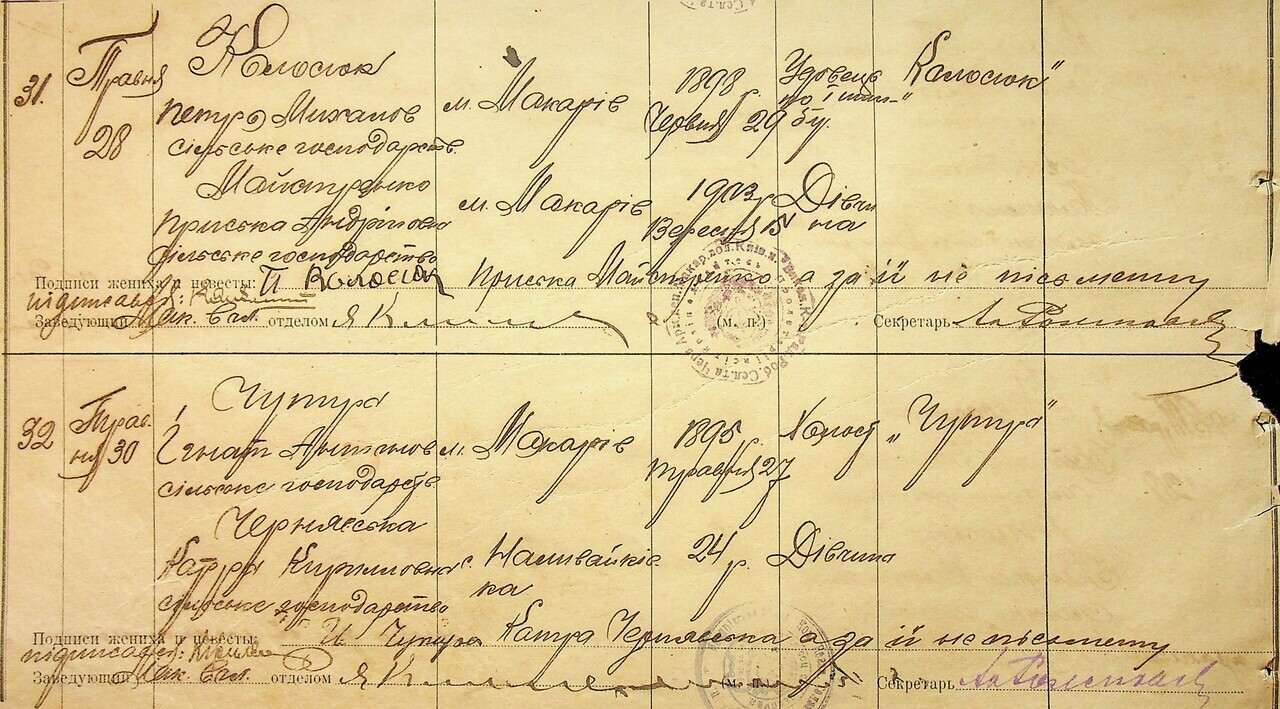 31.
Травня
28
Колосюк
Петро Михалов
сільське господарств.
м. Макарів
1898 р.
Червня 29
Удовець
по І шлю-
бу.
„Колосюк"
Майстренко
Приська Андріївна
сільське господарство
м. Макарів
1903 р.
Вересня 15
Дівчи
на
Подписи жениха и невесты: П Колосюк Приська Майстренко а за йи не письмену
підписався:
Заведующий Мак. Вол. отделом (м. п.) Секретарь
32
Трав.
ня 30
Чутра
Ігнат Антонов
сільське господарств
м. Макарів
1895 р.
травня 27
Холост
„Чутра"
Чернявська
Катря Кириловна
сільське господарство
с. Наливайків
ка
24 р.
Дівчина
Подписи жениха и невесты: И Чутра Катра Чернявська а за йи не письмену
підписався:
Заведующий Мак. Вол. отделом (м. п.) Секретарь